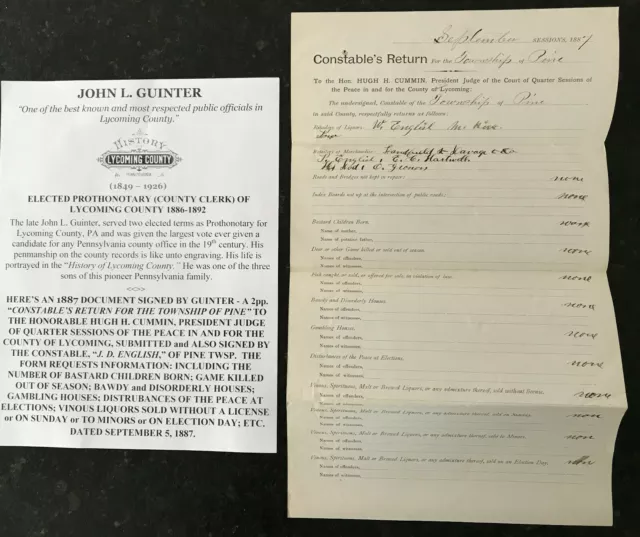 JOHN L. GUINTER
"One of the best known and most respected public officials in
Lycoming County."
HISTORY
LYCOMING COUNTY
(1849 - 1926)
ELECTED PROTHONOTARY (COUNTY CLERK) OF
LYCOMING COUNTY 1886-1892
The late John L. Guinter, served two elected terms as Prothonotary for
Lycoming County, PA and was given the largest vote ever given a
candidate for any Pennsylvania county office in the 19th century. His
penmanship on the county records is like unto engraving. His life is
portrayed in the "History of Lycoming County." He was one of the three
sons of this pioneer Pennsylvania family.
HERE'S AN 1887 DOCUMENT SIGNED BY GUINTER - A 2pp.
"CONSTABLE'S RETURN FOR THE TOWNSHIP OF PINE" TO
THE HONORABLE HUGH H. CUMMIN, PRESIDENT JUDGE
OF QUARTER SESSIONS OF THE PEACE IN AND FOR THE
COUNTY OF LYCOMING, SUBMITTED and ALSO SIGNED BY
THE CONSTABLE, "J. D. ENGLISH," OF PINE TWSP. THE
FORM REQUESTS INFORMATION: INCLUDING THE
NUMBER OF BASTARD CHILDREN BORN; GAME KILLED
OUT OF SEASON; BAWDY and DISORDERLY HOUSES;
GAMBLING HOUSES; DISTRUBANCES OF THE PEACE AT
ELECTIONS; VINOUS LIQUORS SOLD WITHOUT A LICENSE
or ON SUNDAY or TO MINORS or ON ELECTION DAY; ETC.
DATED SEPTEMBER 5, 1887.
September SESSIONS, 1887
Constable's Return For the Township of Pine
To the Hon. HUGH H. CUMMIN, President Judge of the Court of Quarter Sessions of
the Peace in and for the County of Lycoming:
The undersigned, Constable of the Township of Pine
in said County, respectfully returns as follows:
Retailers of Liquor, English
Retailers of Merchandise, Savage & Co
English, E. C. Hartwell
Roads and Bridges not kept in repair: none
Index Boards not up at the intersection of public roads: none
Bastard Children Born, none
Name of mother,
Name of putative father,
Deer or other Game killed or sold out of season, none
Names of offenders,
Names of witnesses,
Fish caught, or sold, or offered for sale, in violation of law: none
Names of offenders,
Names of witnesses,
Bawdy and Disorderly Houses, none
Names of offenders,
Names of witnesses,
Gambling Houses, none
Names of offenders,
Names of witnesses,
Disturbances of the Peace at Elections, none
Names of offenders,
Names of witnesses,
Vinous, Spirituous, Malt or Brewed Liquors, or any admixture thereof, sold without license, none
Names of offenders,
Names of witnesses,
Vinous, Spirituous, Malt or Brewed Liquors, or any admixture thereof, sold on Sunday, none
Names of offenders,
Names of witnesses,
Vinous, Spirituous, Malt or Brewed Liquors, or any admixture thereof, sold to Minors, none
Names of offenders,
Names of witnesses,
Vinous, Spirituous, Malt or Brewed Liquors, or any admixture thereof, sold on an Election Day, none
Names of offenders,
Names of witnesses,